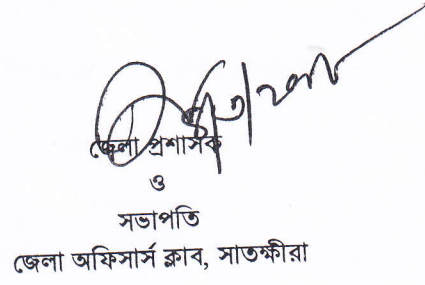 জেলা প্রশাসক
ও
সভাপতি
জেলা অফিসার্স ক্লাব, সাতক্ষীরা